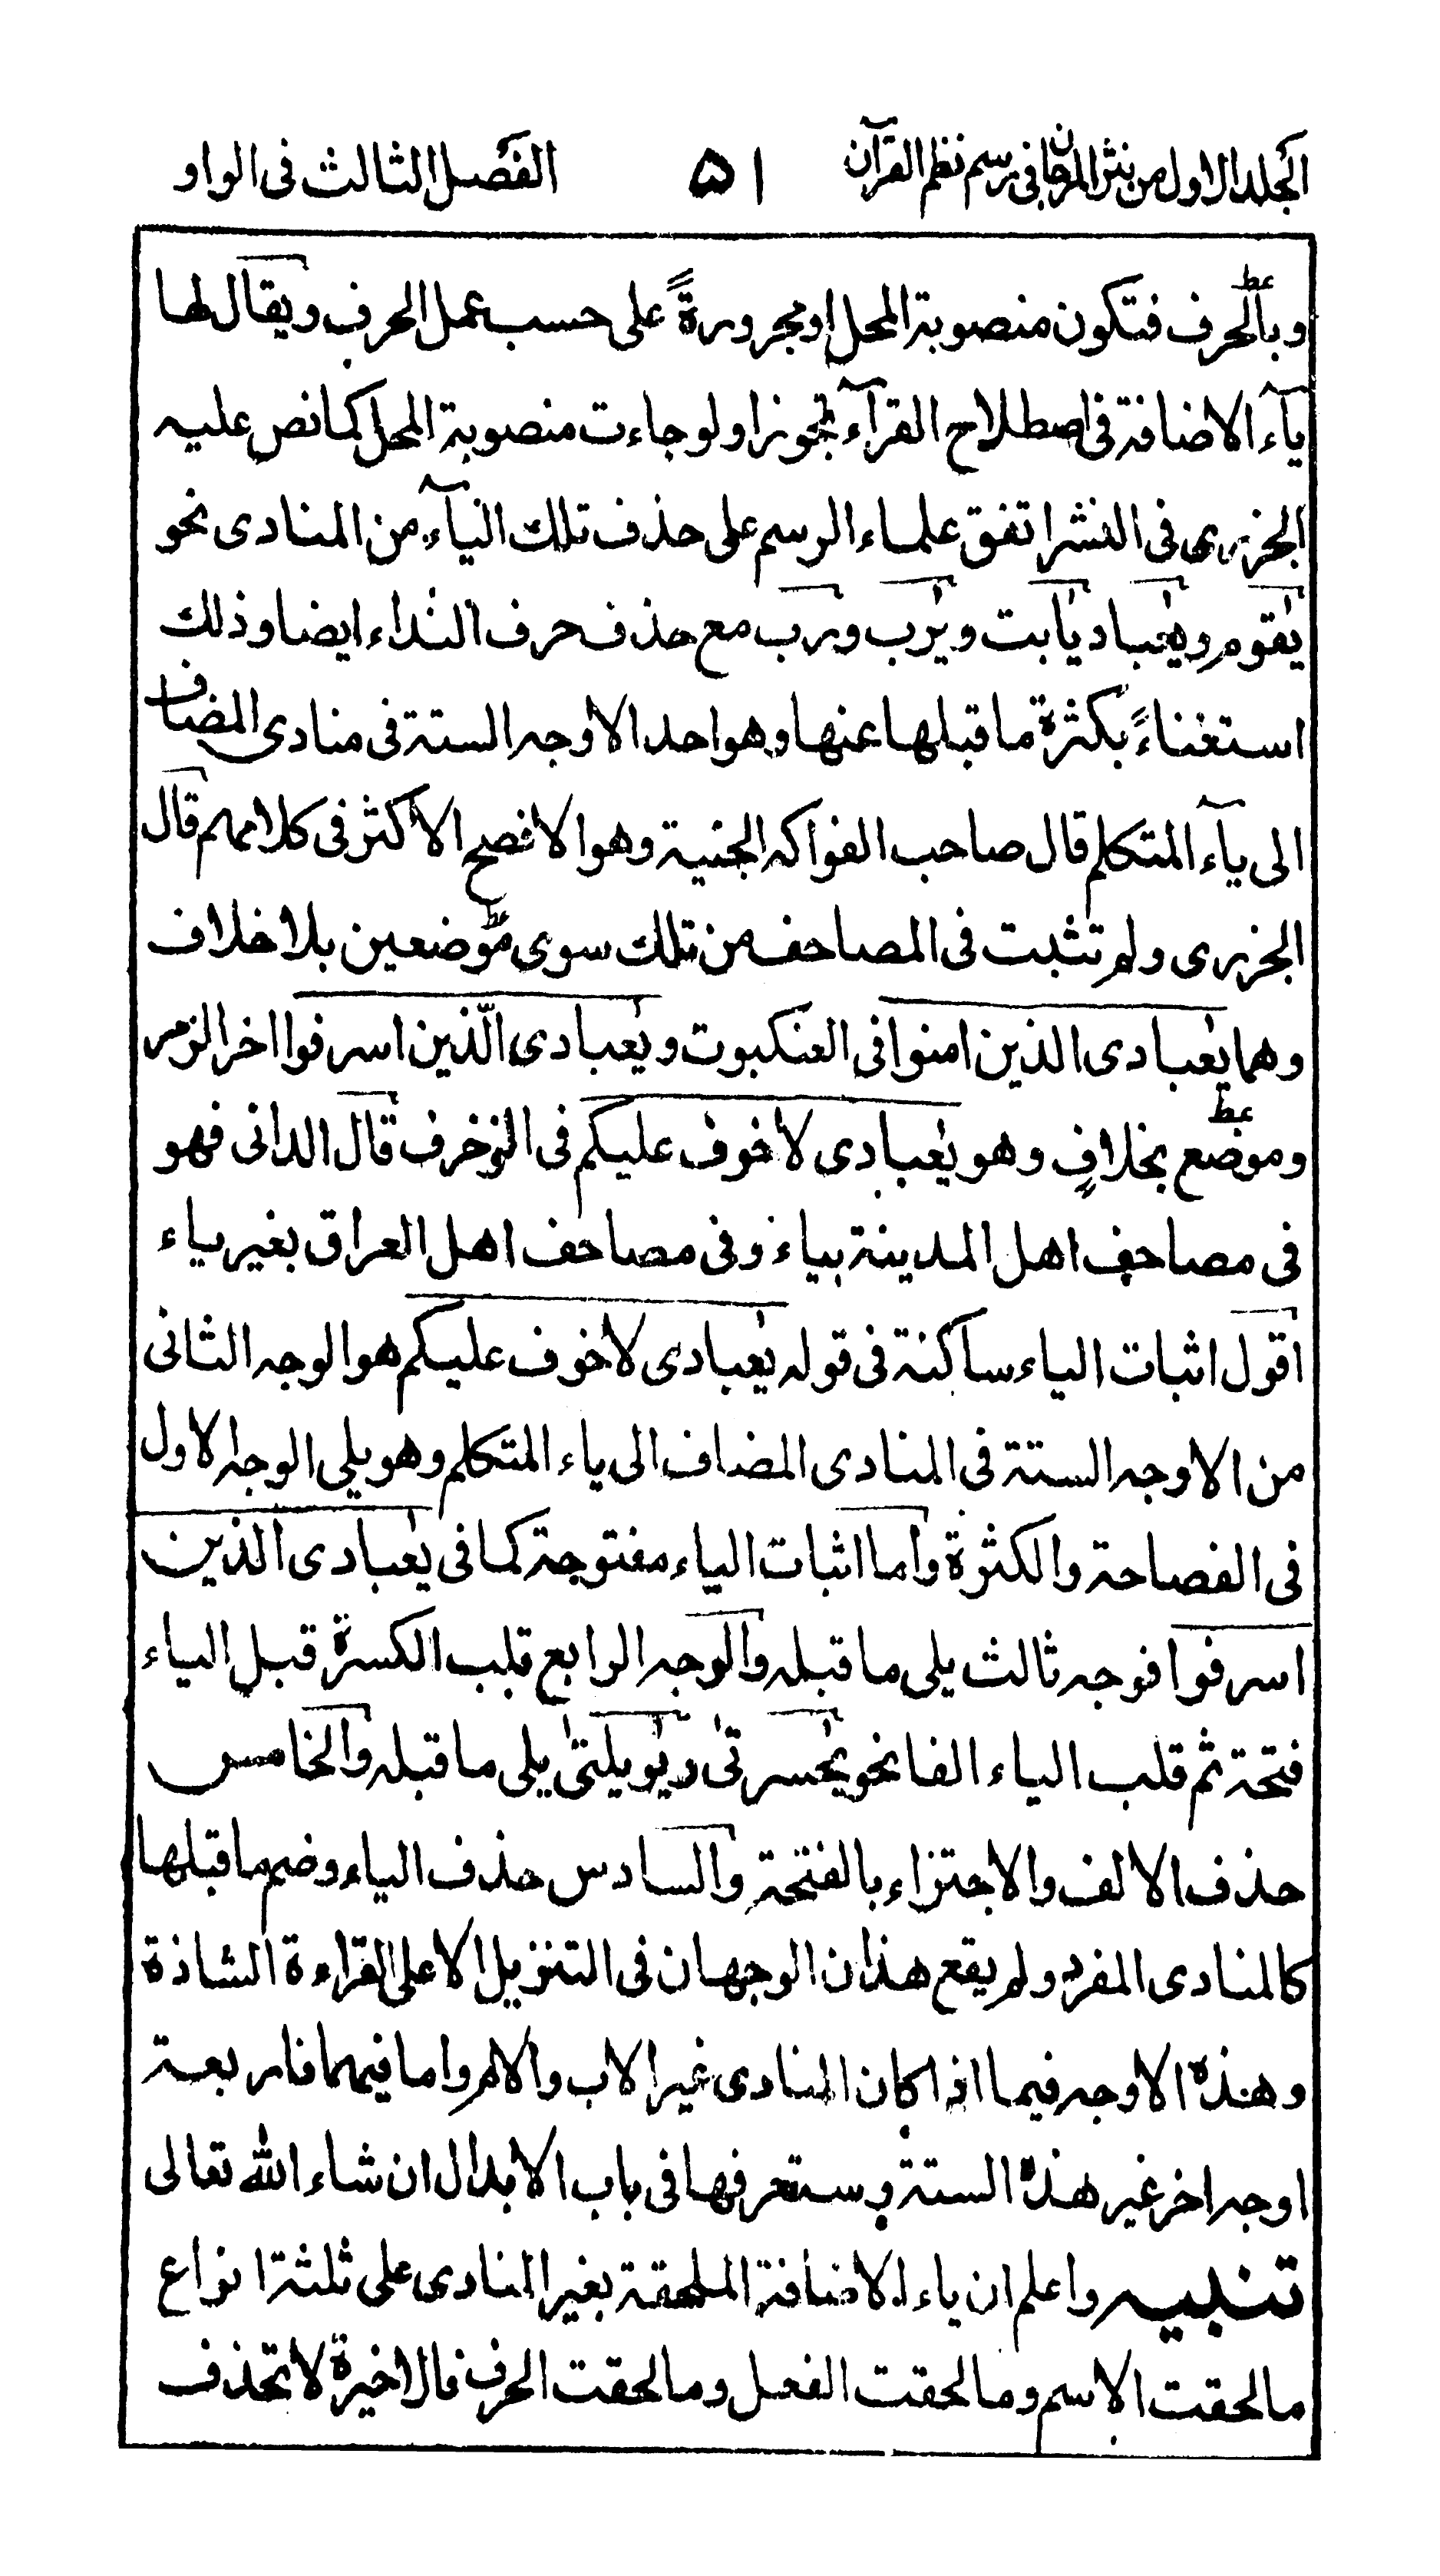 المجلد الاول من نثر المرجان فى رسم نظم القرآن
۵۱
الفصل الثالث فى الواو
عط
وبالحرف فتكون منصوبة المحل او مجرورةً على حسب عمل الحرف ويقال لها
يآء الاضافة فى اصطلاح القرآء تجوزا ولو جاءت منصوبة المحل كما نص عليه
الجزرى فى النشر اتفق علماء الرسم على حذف تلك اليآء من المنادى نحو
يٰقوم ويٰعباد يٰابت ويٰرب ورب مع حذف حرف النداء ايضا وذلك
استغناءً بكثرة ما قبلها عنها وهو احد الاوجه الستة فى منادى المضاف
الى يآء المتكلم قال صاحب الفواكه الجنية وهو الافصح الاكثر فى كلامهم قال
الجزرى ولم تثبت فى المصاحف من تلك سوى موضعين بلا خلاف
وهما يٰعبادى الذين امنوا فى العنكبوت ويٰعبادى الّذين اسرفوا اخر الزمر
عط
وموضع بخلافٍ وهو يٰعبادى لا خوف عليكم فى الزخرف قال الدانى فهو
فى مصاحف اهل المدينة بياء وفى مصاحف اهل العراق بغير ياء
اقول اثبات الياء ساكنة فى قوله يٰعبادى لا خوف عليكم هو الوجه الثانى
من الاوجه الستة فى المنادى المضاف الى ياء المتكلم وهو يلى الوجه الاول
فى الفصاحة والكثرة واما اثبات الياء مفتوحة كما فى يٰعبادى الذين
اسرفوا فوجه ثالث يلى ما قبله والوجه الرابع قلب الكسرة قبل الياء
فتحة ثم قلب الياء الفا نحو يٰحسرتىٰ ويٰويلتىٰ يلى ما قبله والخامس
حذف الالف والاجتزاء بالفتحة والسادس حذف الياء وضم ما قبلها
كالمنادى المفرد ولم يقع هذان الوجهان فى التنزيل الا على القراءة الشاذة
وهذه الاوجه فيما اذا كان المنادى غير الاب والام واما فيهما فاربعة
اوجه اخر غير هذه الستة وستعرفها فى باب الابدال ان شاء الله تعالى
تنبيه واعلم ان ياء الاضافة الملحقة بغير المنادى على ثلثة انواع
ما لحقت الاسم وما لحقت الفعل وما لحقت الحرف فالاخيرة لا تحذف